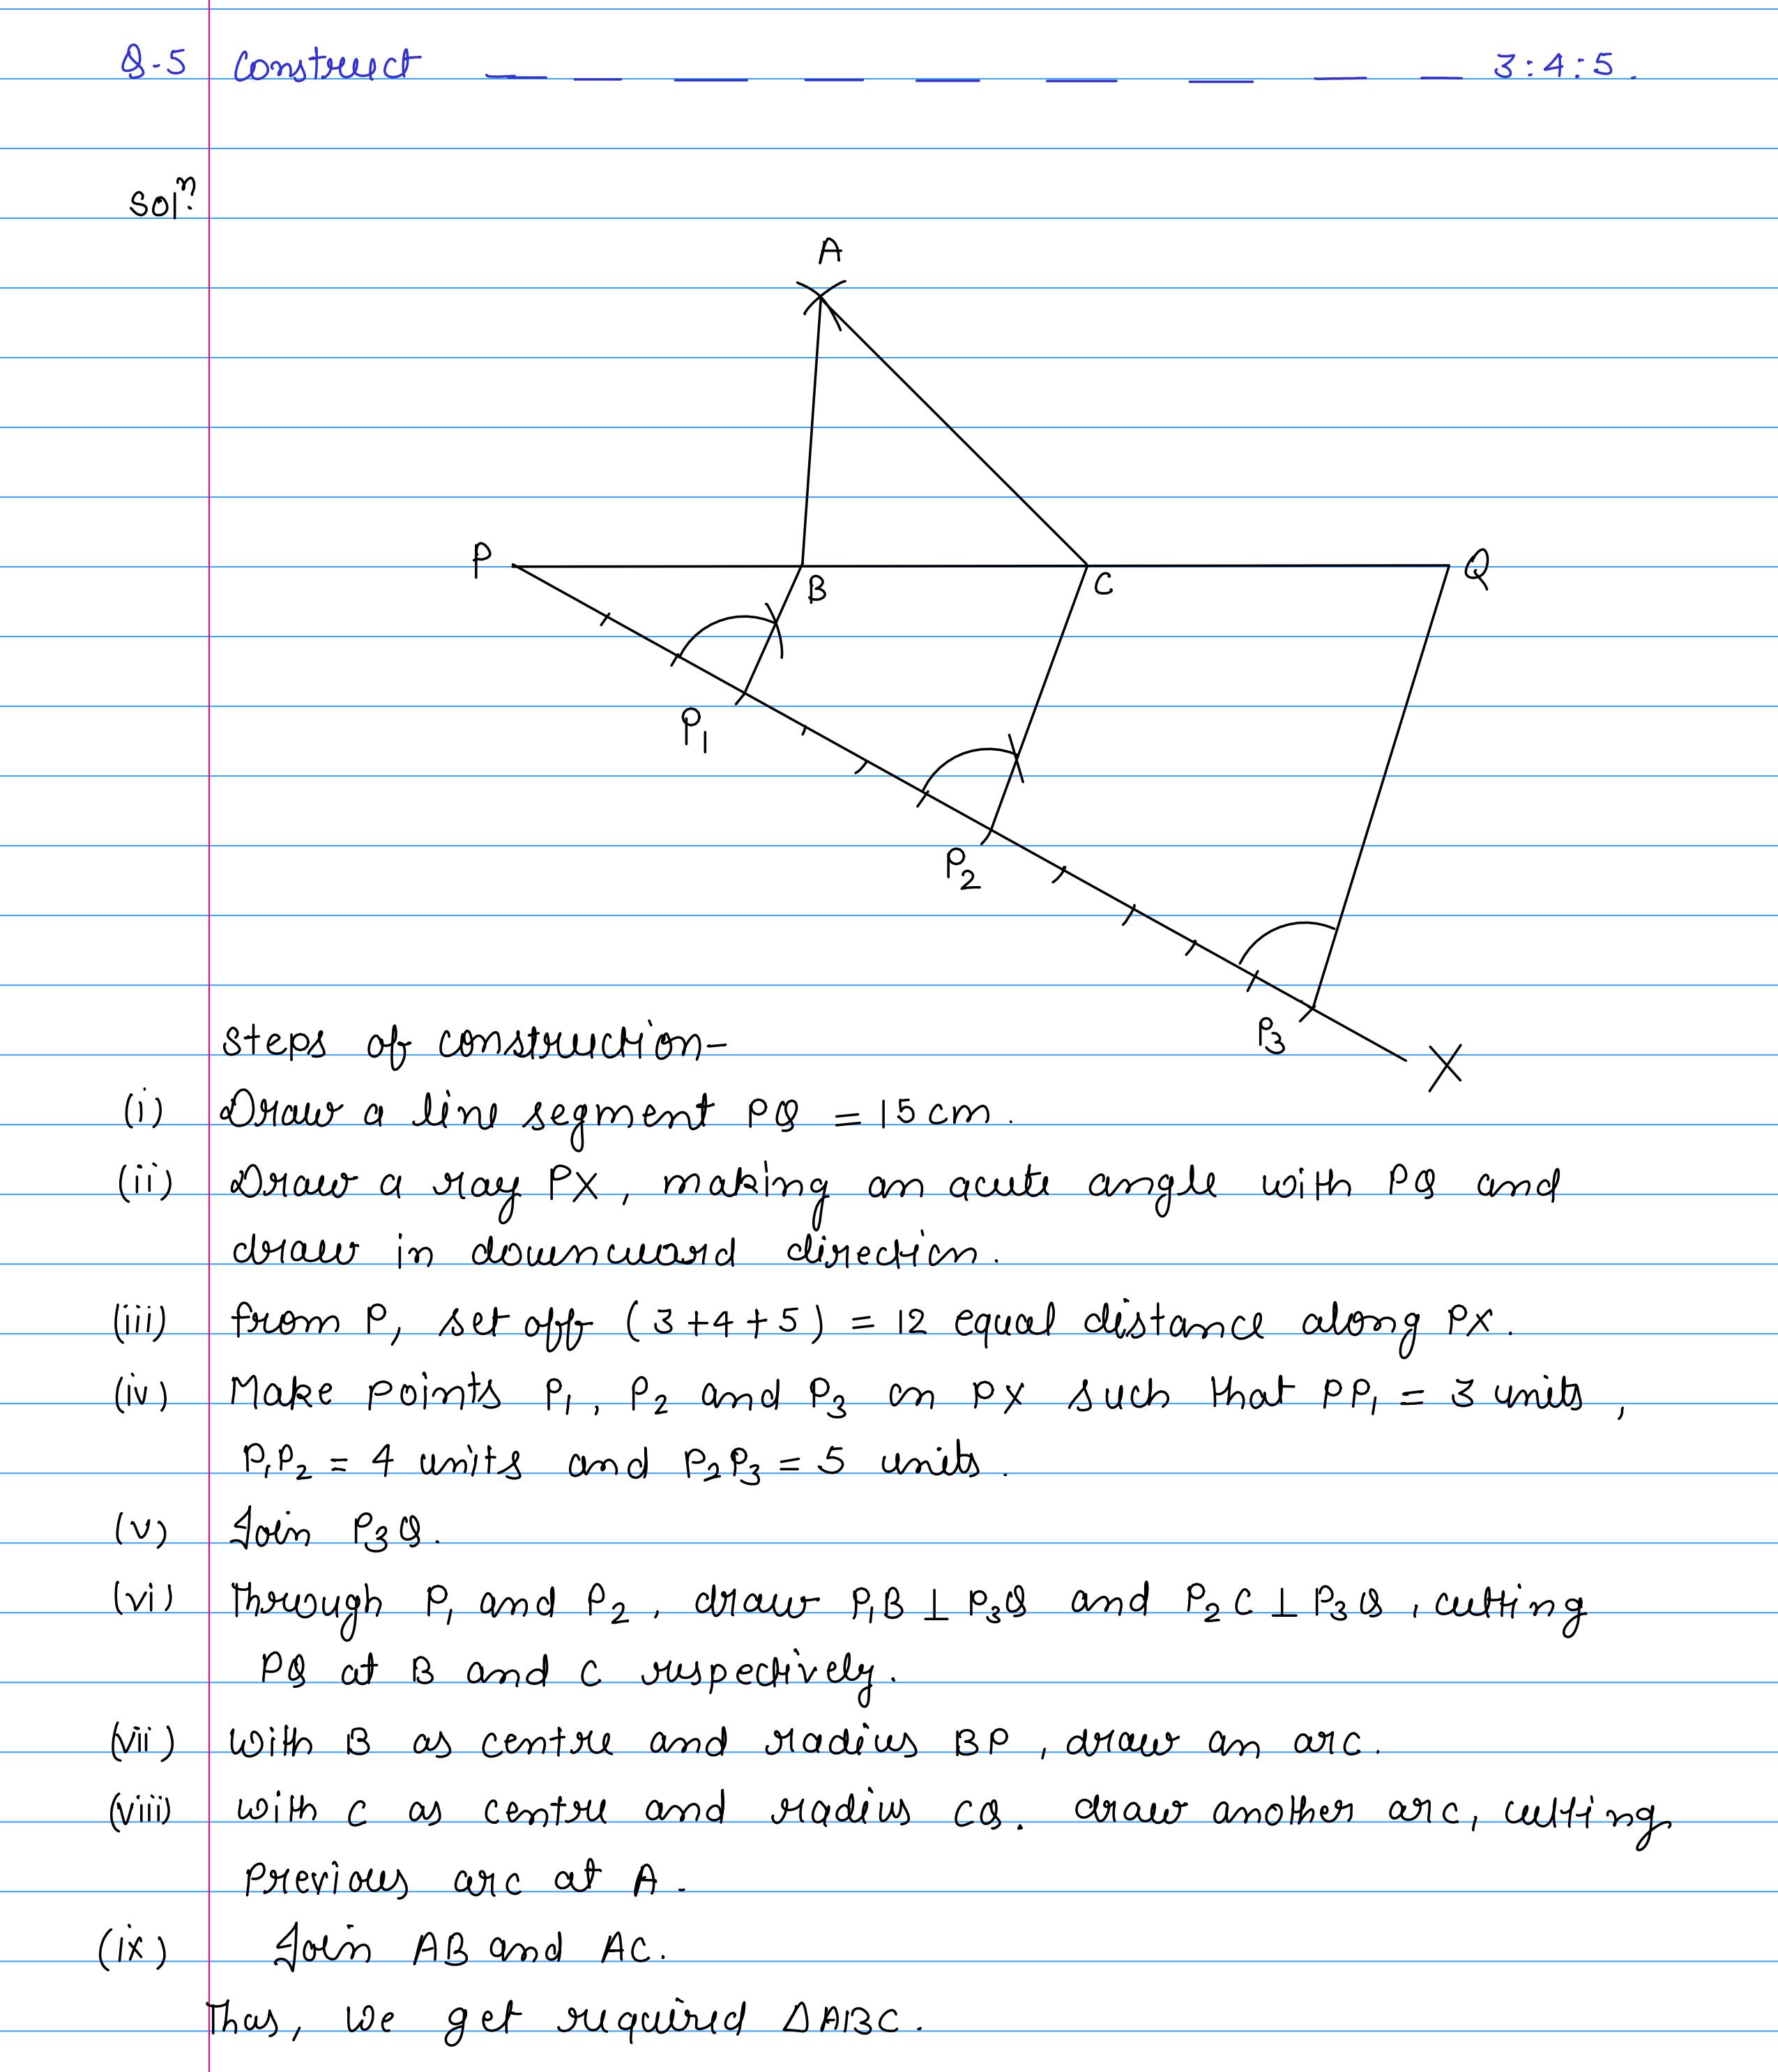 Q-5 Construct — — — — — — — — — 3:4:5.
Solⁿ.
A
P B C Q
P₁
P₂
P₃ X
Steps of construction-
(i) Draw a line segment PQ = 15 cm.
(ii) Draw a ray PX, making an acute angle with PQ and
draw in downward direction.
(iii) from P, set off (3+4+5) = 12 equal distance along PX.
(iv) Make points P₁, P₂ and P₃ on PX such that PP₁ = 3 units,
P₁P₂ = 4 units and P₂P₃ = 5 units.
(v) Join P₃Q.
(vi) Through P₁ and P₂, draw P₁B ⊥ P₃Q and P₂C ⊥ P₃Q, cutting
PQ at B and C respectively.
(vii) With B as centre and radius BP, draw an arc.
(viii) with C as centre and radius CQ. draw another arc, cutting
previous arc at A.
(ix) Join AB and AC.
Thas, We get required ΔABC.